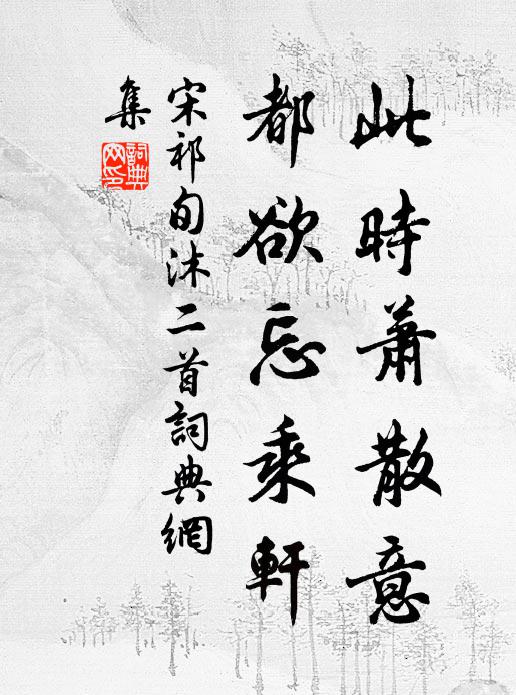 此時蕭散意
都欲忘乘軒
宋祁旬沐二首詞典網
集
詞典網印